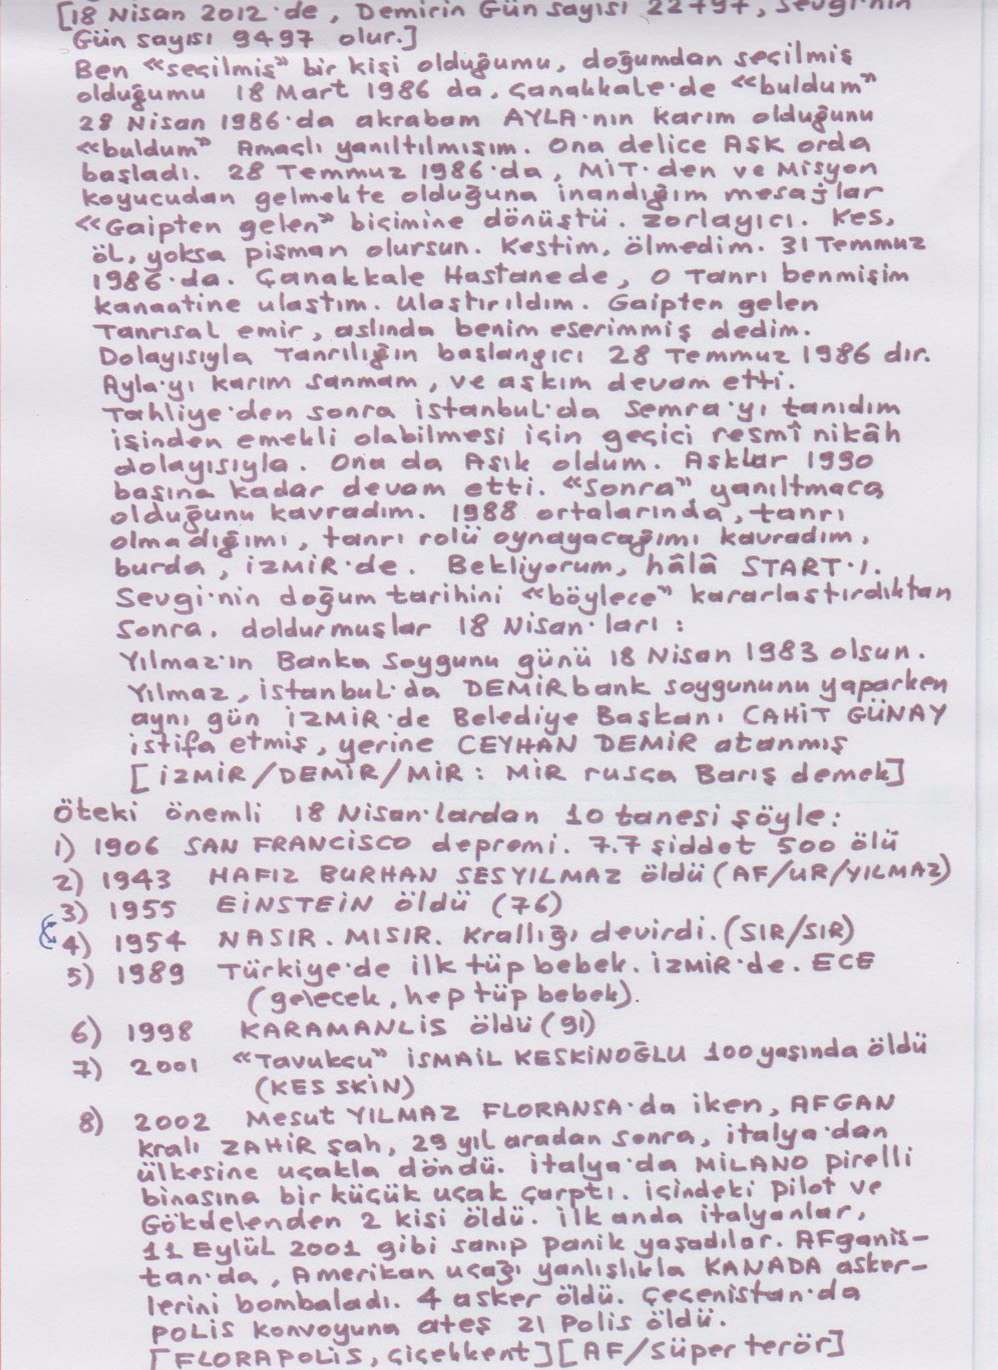 [18 Nisan 2012'de, Demirin Gün sayısı 22797, Sevgi'nin
Gün sayısı 9497 olur.]
Ben «seçilmiş» bir kişi olduğumu, doğumdan seçilmiş
olduğumu 18 Mart 1986 da, Çanakkale'de «buldum»
28 Nisan 1986'da akrabam AYLA'nın karım olduğunu
«buldum» Amaçlı yanıltılmışım. Ona delice Aşk orda
başladı. 28 Temmuz 1986'da, MİT'den ve Misyon
koyucudan gelmekte olduğuna inandığım mesajlar
«Gaipten gelen» biçimine dönüştü. Zorlayıcı. Kes,
öl, yoksa pişman olursun. Kestim, ölmedim. 31 Temmuz
1986'da. Çanakkale Hastanede, O Tanrı benmişim
kanaatine ulaştım. Ulaştırıldım. Gaipten gelen
Tanrısal emir, aslında benim eserimmiş dedim.
Dolayısıyla Tanrılığın başlangıcı 28 Temmuz 1986 dır.
Ayla'yı karım sanmam, ve aşkım devam etti.
Tahliye'den sonra istanbul'da Semra'yı tanıdım
işinden emekli olabilmesi için geçici resmî nikâh
dolayısıyla. Ona da Aşık oldum. Aşklar 1990
başına kadar devam etti. «Sonra» yanıltmaca
olduğunu kavradım. 1988 ortalarında, tanrı
olmadığımı, tanrı rolü oynayacağımı kavradım,
burda, İZMİR'de. Bekliyorum, hâlâ START'ı.
Sevgi'nin doğum tarihini «böylece» kararlaştırdıktan
Sonra. doldurmuşlar 18 Nisan'ları :
Yılmaz'ın Banka Soygunu günü 18 Nisan 1983 olsun.
Yılmaz, istanbul'da DEMİRbank soygununu yaparken
aynı gün İZMİR'de Belediye Başkanı CAHİT GÜNAY
istifa etmiş, yerine CEYHAN DEMİR atanmış
[İZMİR/DEMİR/MİR : MİR rusça Barış demek]
Öteki önemli 18 Nisan'lardan 10 tanesi şöyle:
1) 1906 SAN FRANCİSCO depremi. 7.7 şiddet 500 ölü
2) 1943 HAFIZ BURHAN SESYILMAZ öldü (AF/UR/YILMAZ)
3) 1955 EİNSTEİN öldü (76)
4) 1954 NASIR. MISIR. Krallığı devirdi. (SIR/SIR)
5) 1989 Türkiye'de ilk tüp bebek. İZMİR'de. ECE
(gelecek, hep tüp bebek).
6) 1998 KARAMANLİS öldü (91)
7) 2001 «Tavukçu» İSMAİL KESKİNOĞLU 100 yaşında öldü
(KES SKİN)
8) 2002 Mesut YILMAZ FLORANSA'da iken, AFGAN
kralı ZAHİR Şah, 29 yıl aradan sonra, italya'dan
ülkesine uçakla döndü. italya'da MİLANO pirelli
binasına bir küçük uçak çarptı. içindeki pilot ve
Gökdelenden 2 kişi öldü. ilk anda italyanlar,
11 Eylül 2001 gibi sanıp panik yaşadılar. AFganis-
tan'da, Amerikan uçağı yanlışlıkla KANADA asker-
lerini bombaladı. 4 asker öldü. Çeçenistan'da
POLİS konvoyuna ateş 21 Polis öldü.
[FLORAPOLİS, çiçekkent] [AF/Süper terör]